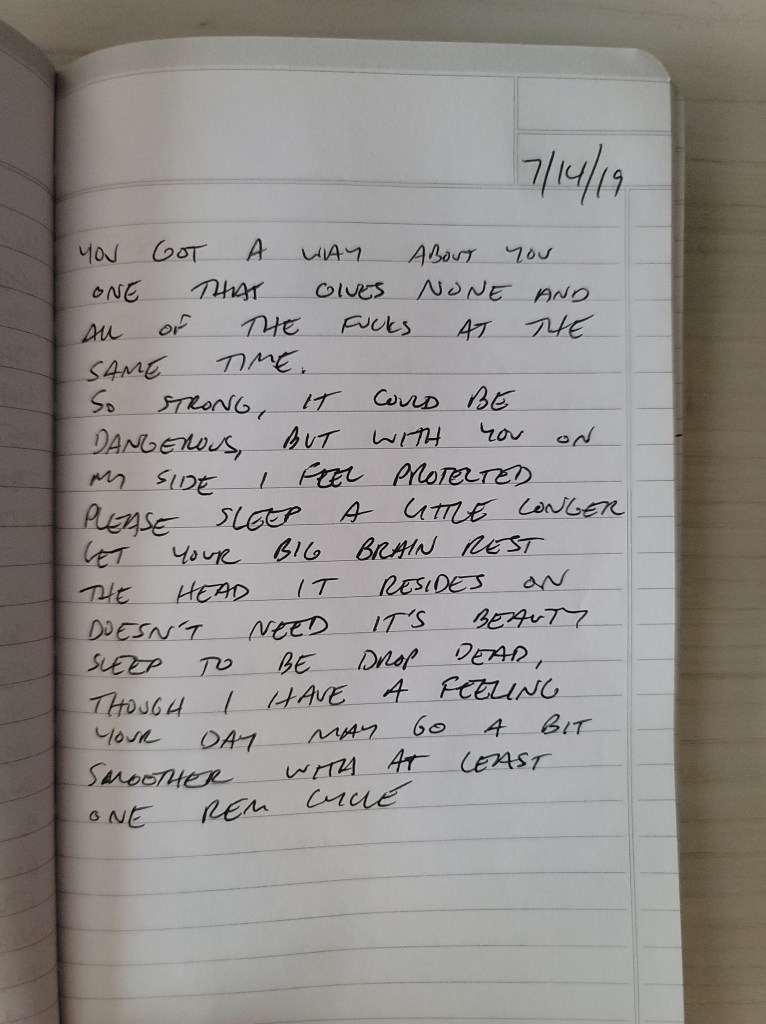 7/14/19
YOU GOT A WAY ABOUT YOU
ONE THAT GIVES NONE AND
ALL OF THE FUCKS AT THE
SAME TIME.
SO STRONG, IT COULD BE
DANGEROUS, BUT WITH YOU ON
MY SIDE I FEEL PROTECTED
PLEASE SLEEP A LITTLE LONGER
LET YOUR BIG BRAIN REST
THE HEAD IT RESIDES ON
DOESN'T NEED IT'S BEAUTY
SLEEP TO BE DROP DEAD,
THOUGH I HAVE A FEELING
YOUR DAY MAY GO A BIT
SMOOTHER WITH AT LEAST
ONE REM CYCLE